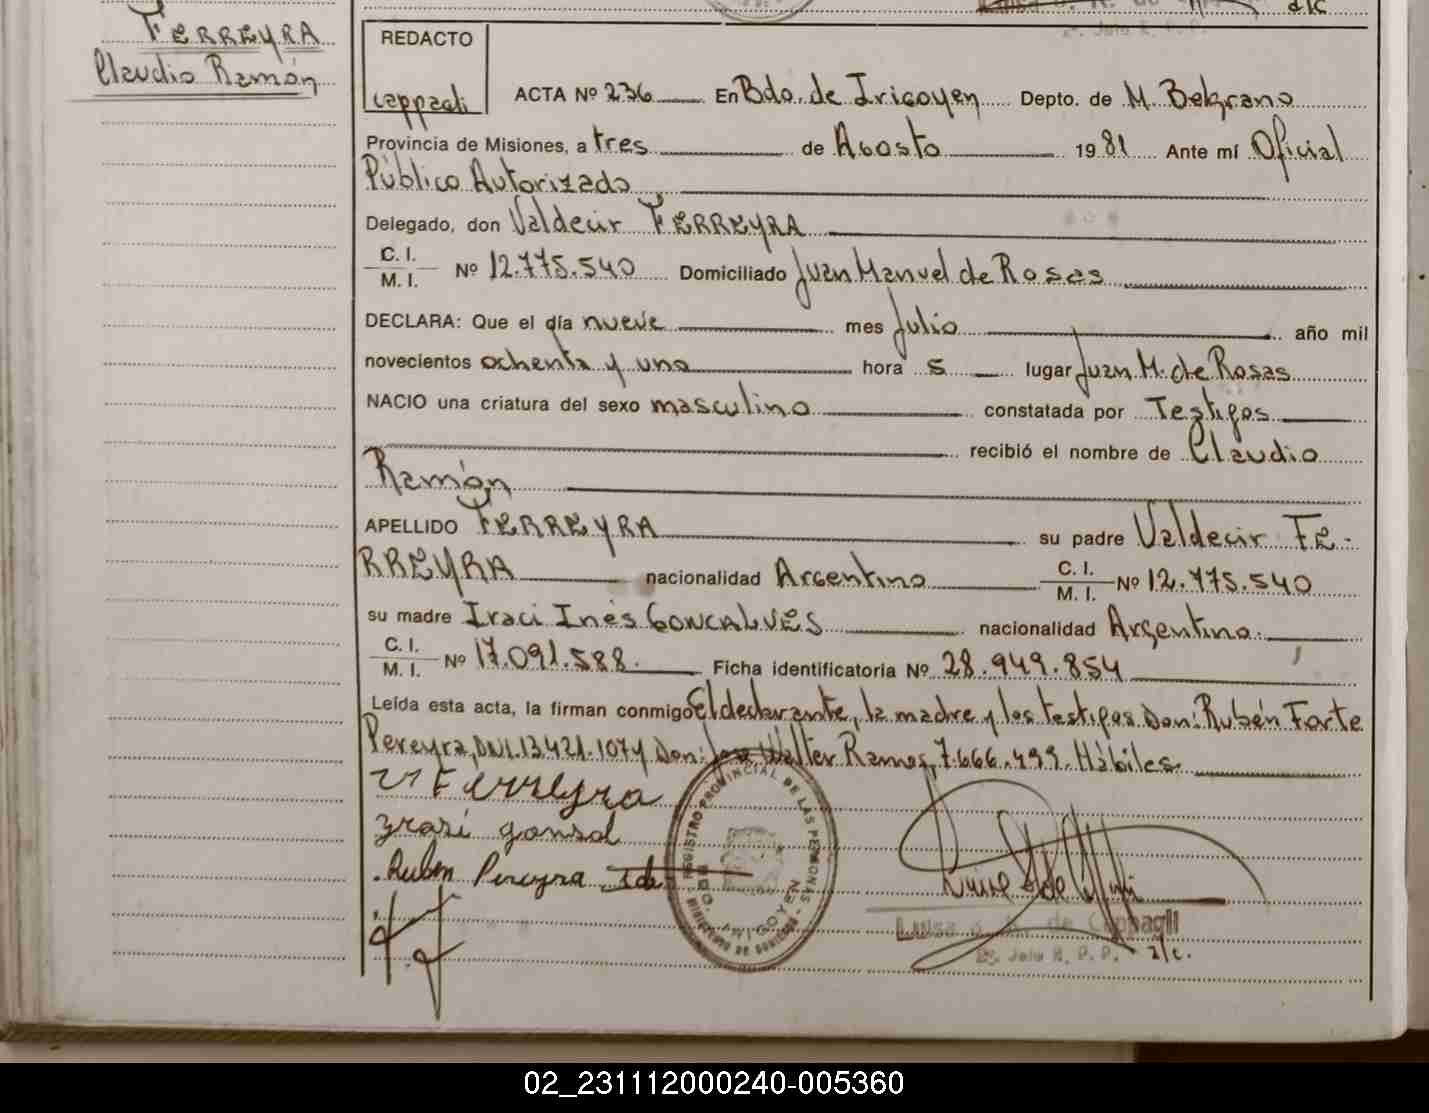 FERREYRA
Claudio Ramón
REDACTO
Cappagli
ACTA Nº 236 En Bdo. de Irigoyen Depto. de M. Belgrano
Provincia de Misiones, a tres de Agosto 1981 Ante mí Oficial
Público Autorizado
Delegado, don Valdecir FERREYRA
C. I.
M. I. Nº 12.775.540 Domiciliado Juan Manuel de Rosas
DECLARA: Que el día nueve mes Julio año mil
novecientos ochenta y uno hora 5 lugar Juan M. de Rosas
NACIO una criatura del sexo masculino constatada por Testigos
recibió el nombre de Claudio
Ramón
APELLIDO FERREYRA su padre Valdecir FE-
RREYRA nacionalidad Argentino C. I.
M. I. Nº 12.775.540
su madre Iraci Inés GONCALVES nacionalidad Argentina.
C. I.
M. I. Nº 17.091.588. Ficha identificatoria Nº 28.949.854
Leída esta acta, la firman conmigo El declarante, la madre y los testigos Don: Rubén Forte
Pereyra, DNI. 13421.107 y Don: José Walter Ramos, 7.666.499. Hábiles.
V Ferreyra
Irasi gonsal
Ruben Pereyra
REGISTRO PROVINCIAL DE LAS PERSONAS
BDO. IRIGOYEN
MINISTERIO DE GOBIERNO
Luisa de Cappagli
R. P. P. a/c.
02_231112000240-005360